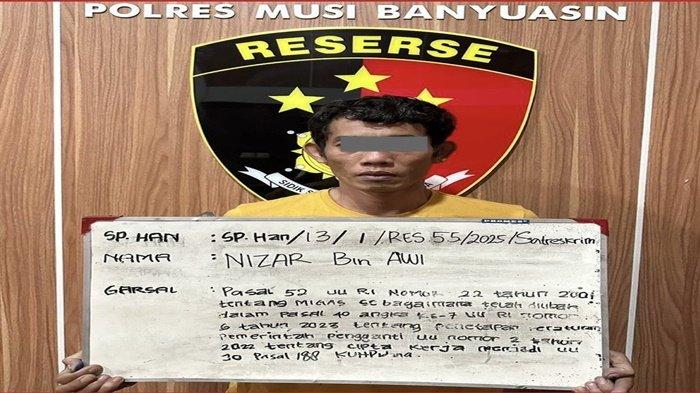 POLRES MUSI BANYUASIN
RESERSE
SIDIK
PROMEC
SP. HAN : SP. Han/13/1/RES 5.5/2025/Satreskrim
NAMA : NIZAR Bin AWI
GARSAL : Pasal 52 UU RI Nomor 22 tahun 2001
tentang MIGAS sebagaimana telah diubah
dalam Pasal 40 angka Ke-7 UU RI nomor
6 tahun 2023 tentang penetapan eraturan
Pemerintah pengganti UU nomor 2 tahun
2022 tentang cipta kerja menjadi UU
Jo Pasal 188 KUHPidana.